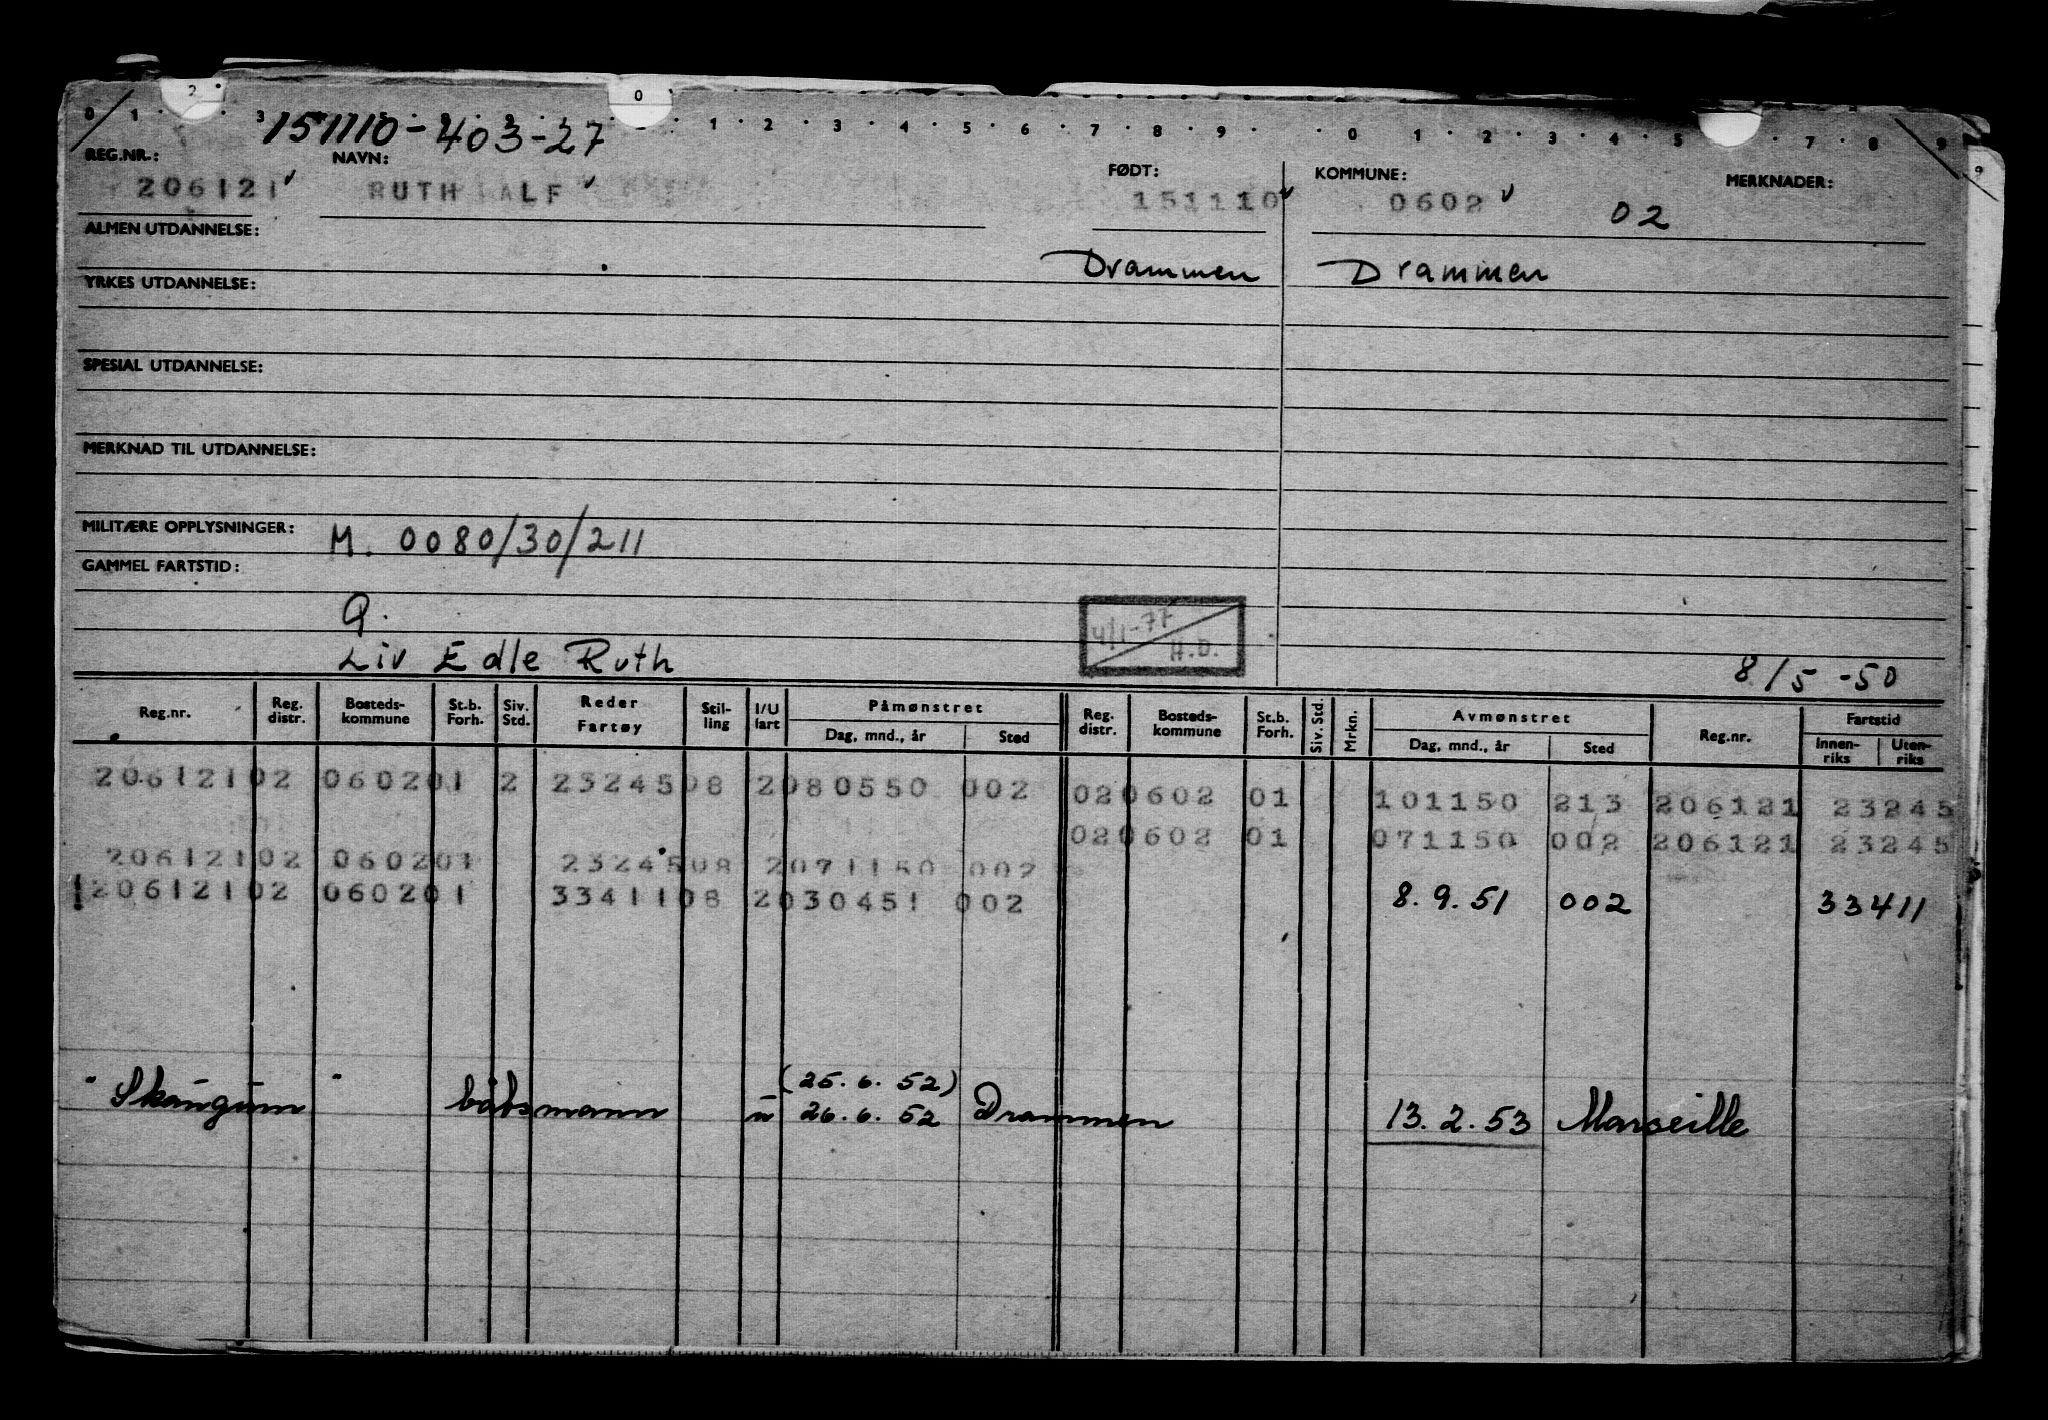 2 0
0 1 3 1 2 3 4 5 6 7 8 9 0 1 2 3 4 5 7 8 9
151110-403-27
REG.NR.: NAVN: FØDT: KOMMUNE: MERKNADER:
206121 RUTH ALF 151110 0602 02
ALMEN UTDANNELSE:
Drammen Drammen
YRKES UTDANNELSE:
SPESIAL UTDANNELSE:
MERKNAD TIL UTDANNELSE:
MILITÆRE OPPLYSNINGER: M. 0080/30/211
GAMMEL FARTSTID:
G.
4/1-77
H.D.
Liv Edle Ruth
8/5-50
Reg.nr. Reg. distr. Bosteds-kommune St.b. Forh. Siv. Std. Reder Fartøy Stil-ling I/U fart Påmønstret Dag, mnd., år Sted Reg. distr. Bosteds-kommune St.b. Forh. Siv. Std. Mrkn. Avmønstret Dag, mnd., år Sted Reg.nr. Fartstid Innen-riks Uten-riks
206121 02 0602 01 2 23245 08 2 080550 002 02 0602 01 101150 213 206121 23245
02 0602 01 071150 002 206121 23245
206121 02 0602 01 23245 08 2 071150 002
206121 02 0602 01 33411 08 2 030451 002 8.9.51 002 33411
(25.6.52)
"Skaugum" båtsmann u 26.6.52 Drammen 13.2.53 Marseille